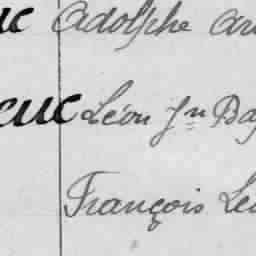 uc Adolphe
cuc Léon Jn
François